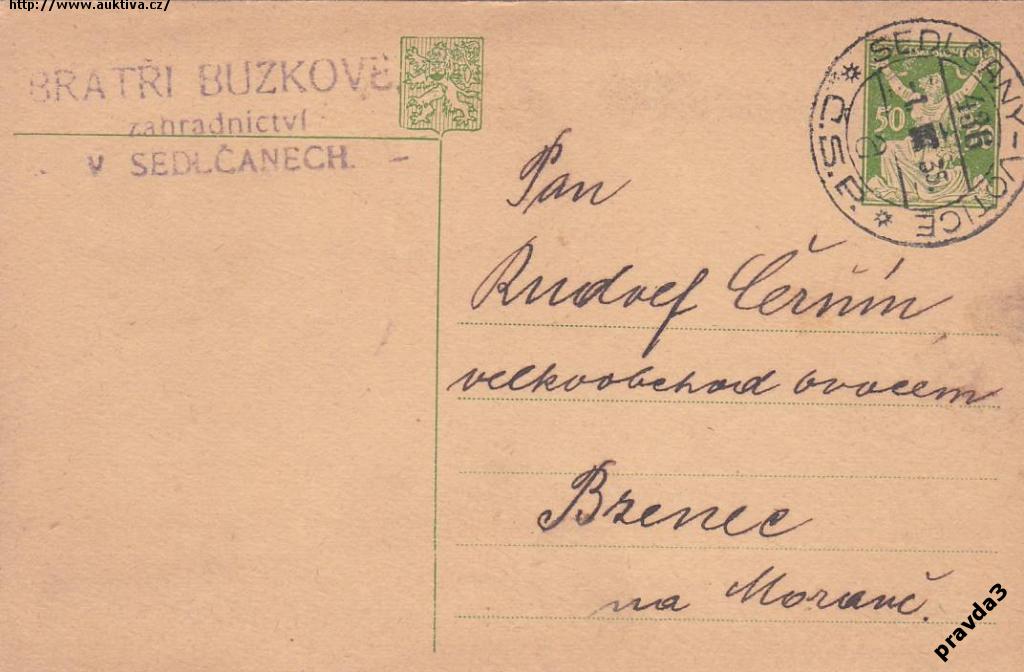 http://www.auktiva.cz/
BRATŘI BUZKOVÉ,
zahradnictví
v SEDLČANECH.
SEDLČANY-VOTICE
Č.S.P.
436
35
50
Pan
Rudolf
velkoobchod ovocem
Bzenec
na Moravě.
pravda3